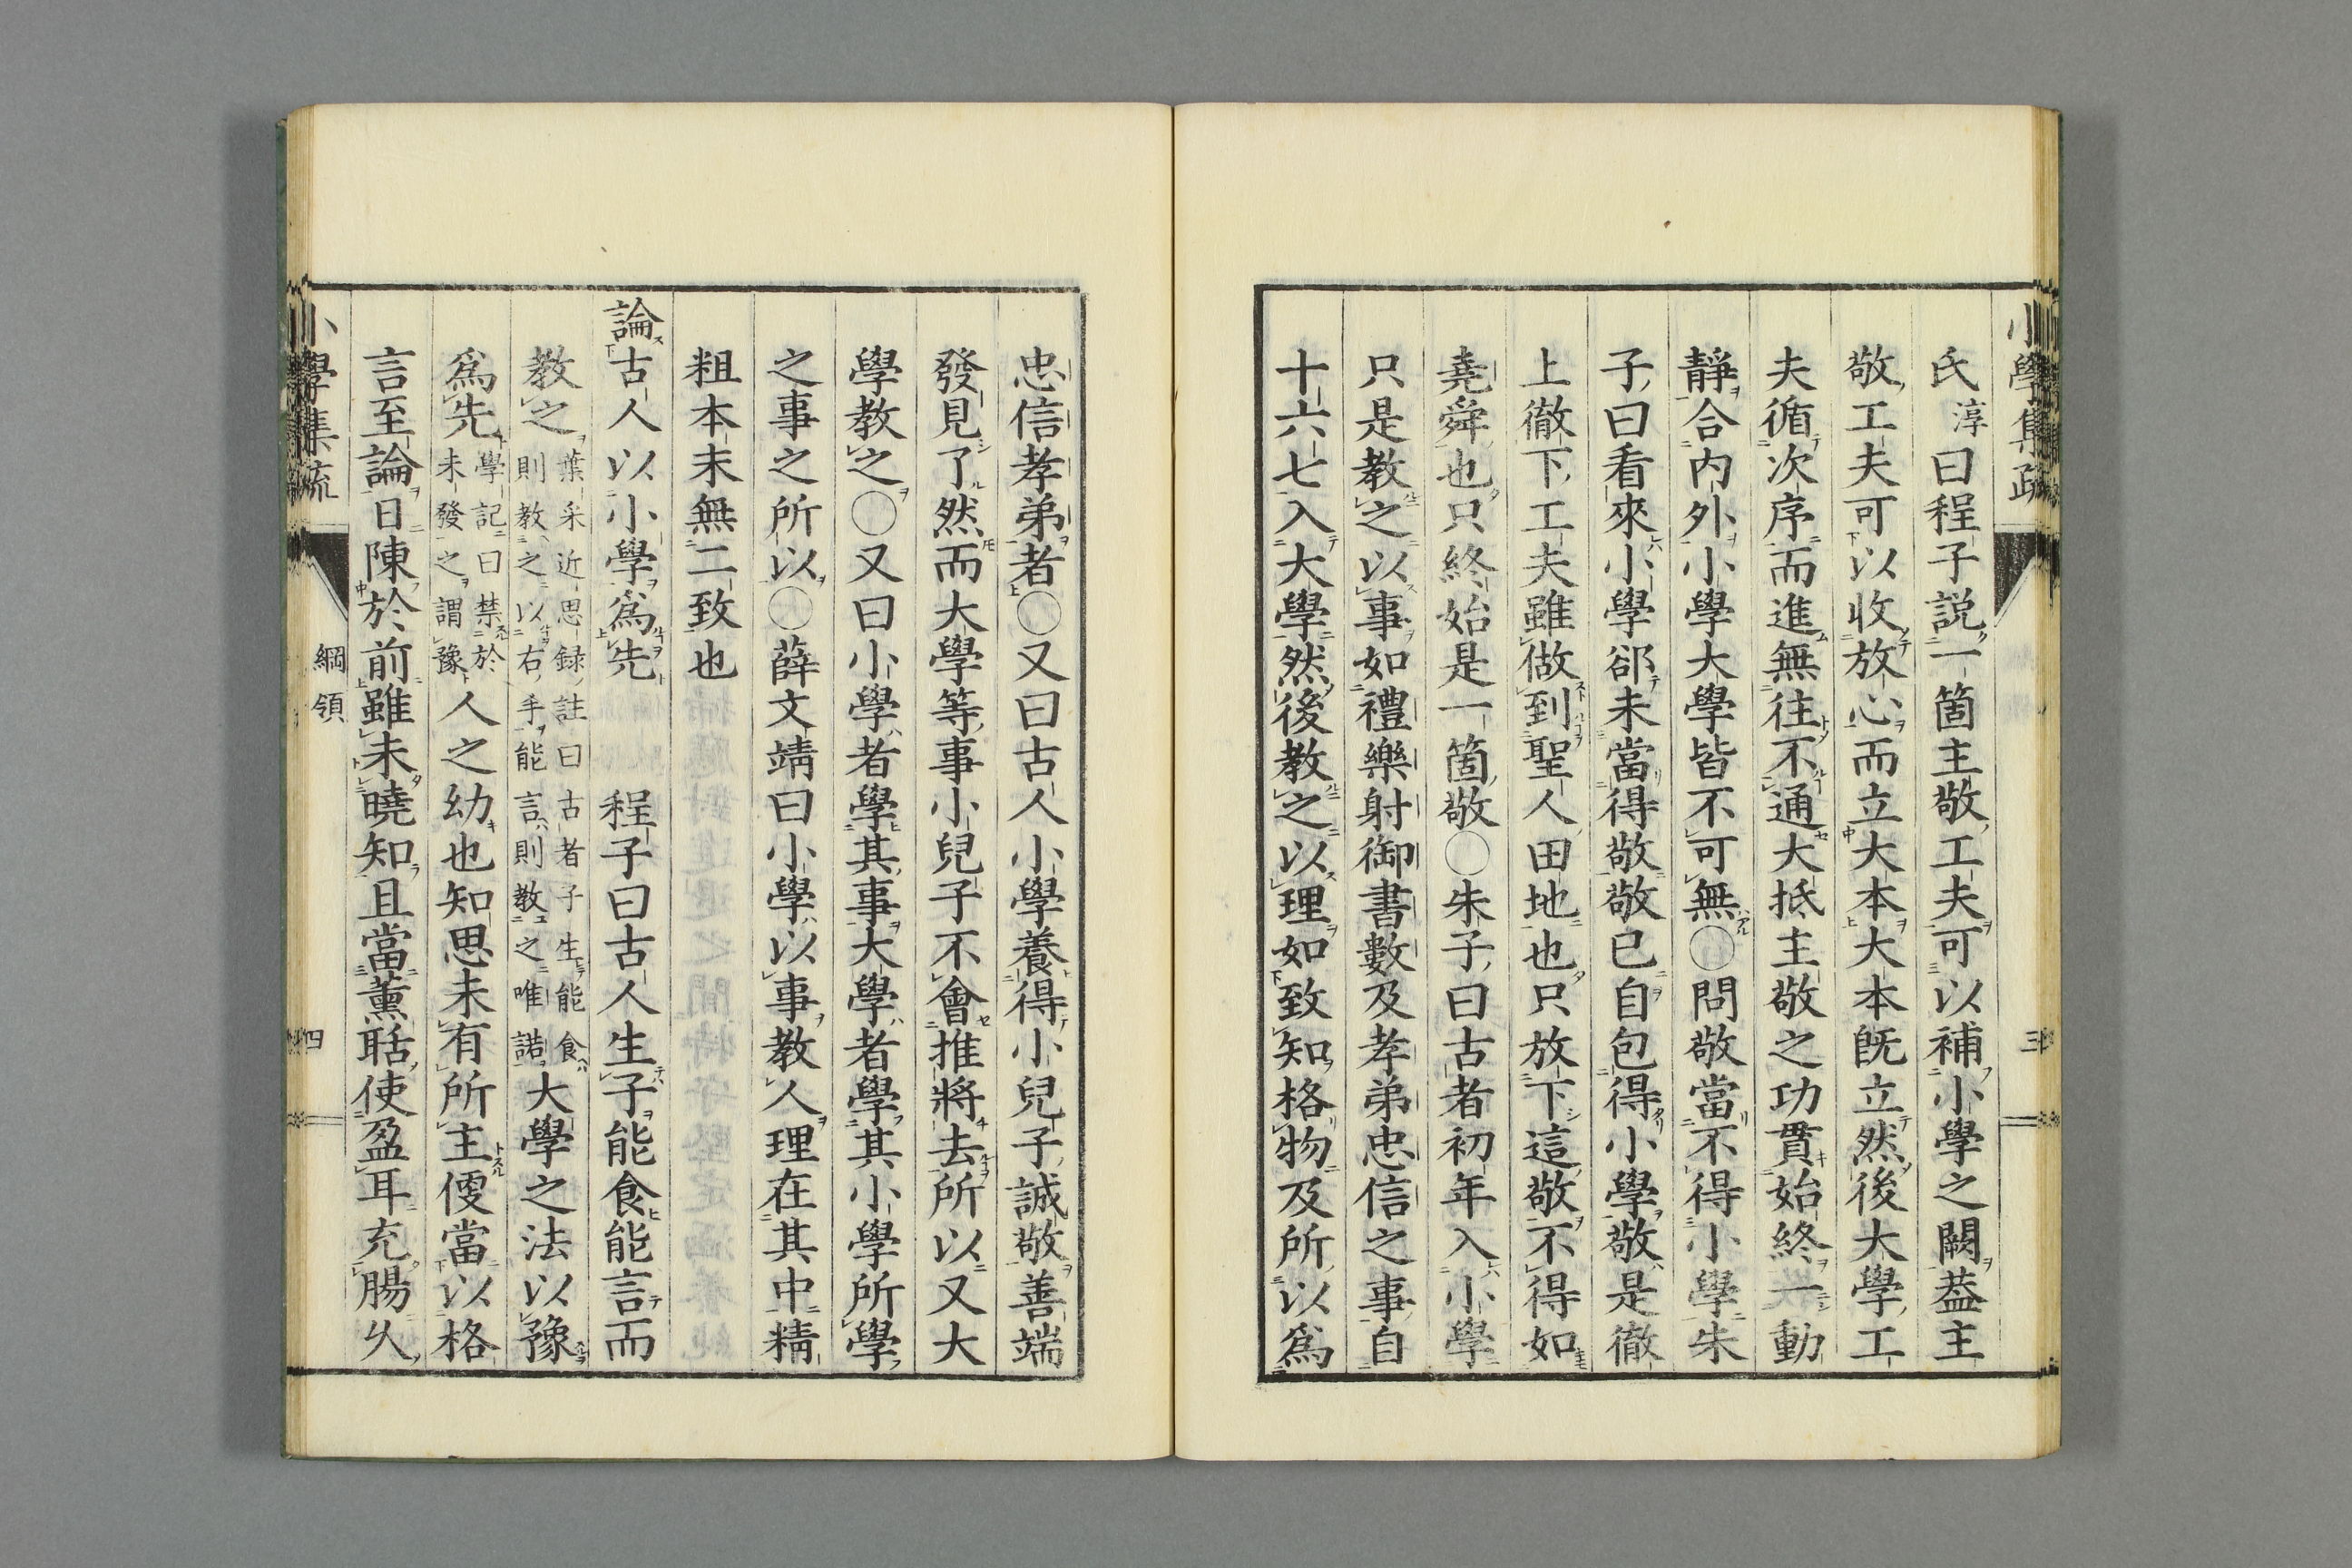 小學集疏
三
氏淳曰程子説一箇主敬工夫可以補小學之闕葢主
敬工夫可以收放心而立大本大本旣立然後大學工
夫循次序而進無往不通大抵主敬之功貫始終一動
靜合内外小學大學皆不可無〇問敬當不得小學朱
子曰看來小學郤未當得敬敬已自包得小學敬是徹
上徹下工夫雖做到聖人田地也只放下這敬不得如
堯舜也只終始是一箇敬〇朱子曰古者初年入小學
只是教之以事如禮樂射御書數及孝弟忠信之事自
十六七入大學然後教之以理如致知格物及所以爲
忠信孝弟者〇又曰古人小學養得小兒子誠敬善端
發見了然而大學等事小兒子不會推將去所以又大
學教之〇又曰小學者學其事大學者學其小學所學
之事之所以〇薛文靖曰小學以事教人理在其中精
粗本末無二致也
論古人以小學爲先　程子曰古人生子能食能言而
教之葉采近思録註曰古者子生能食
則教之以右手能言則教之唯諾大學之法以豫
爲先學記曰禁於
未發之謂豫人之幼也知思未有所主便當以格
言至論日陳於前雖未曉知且當薰聒使盈耳充腸久
小學集疏
綱領
四